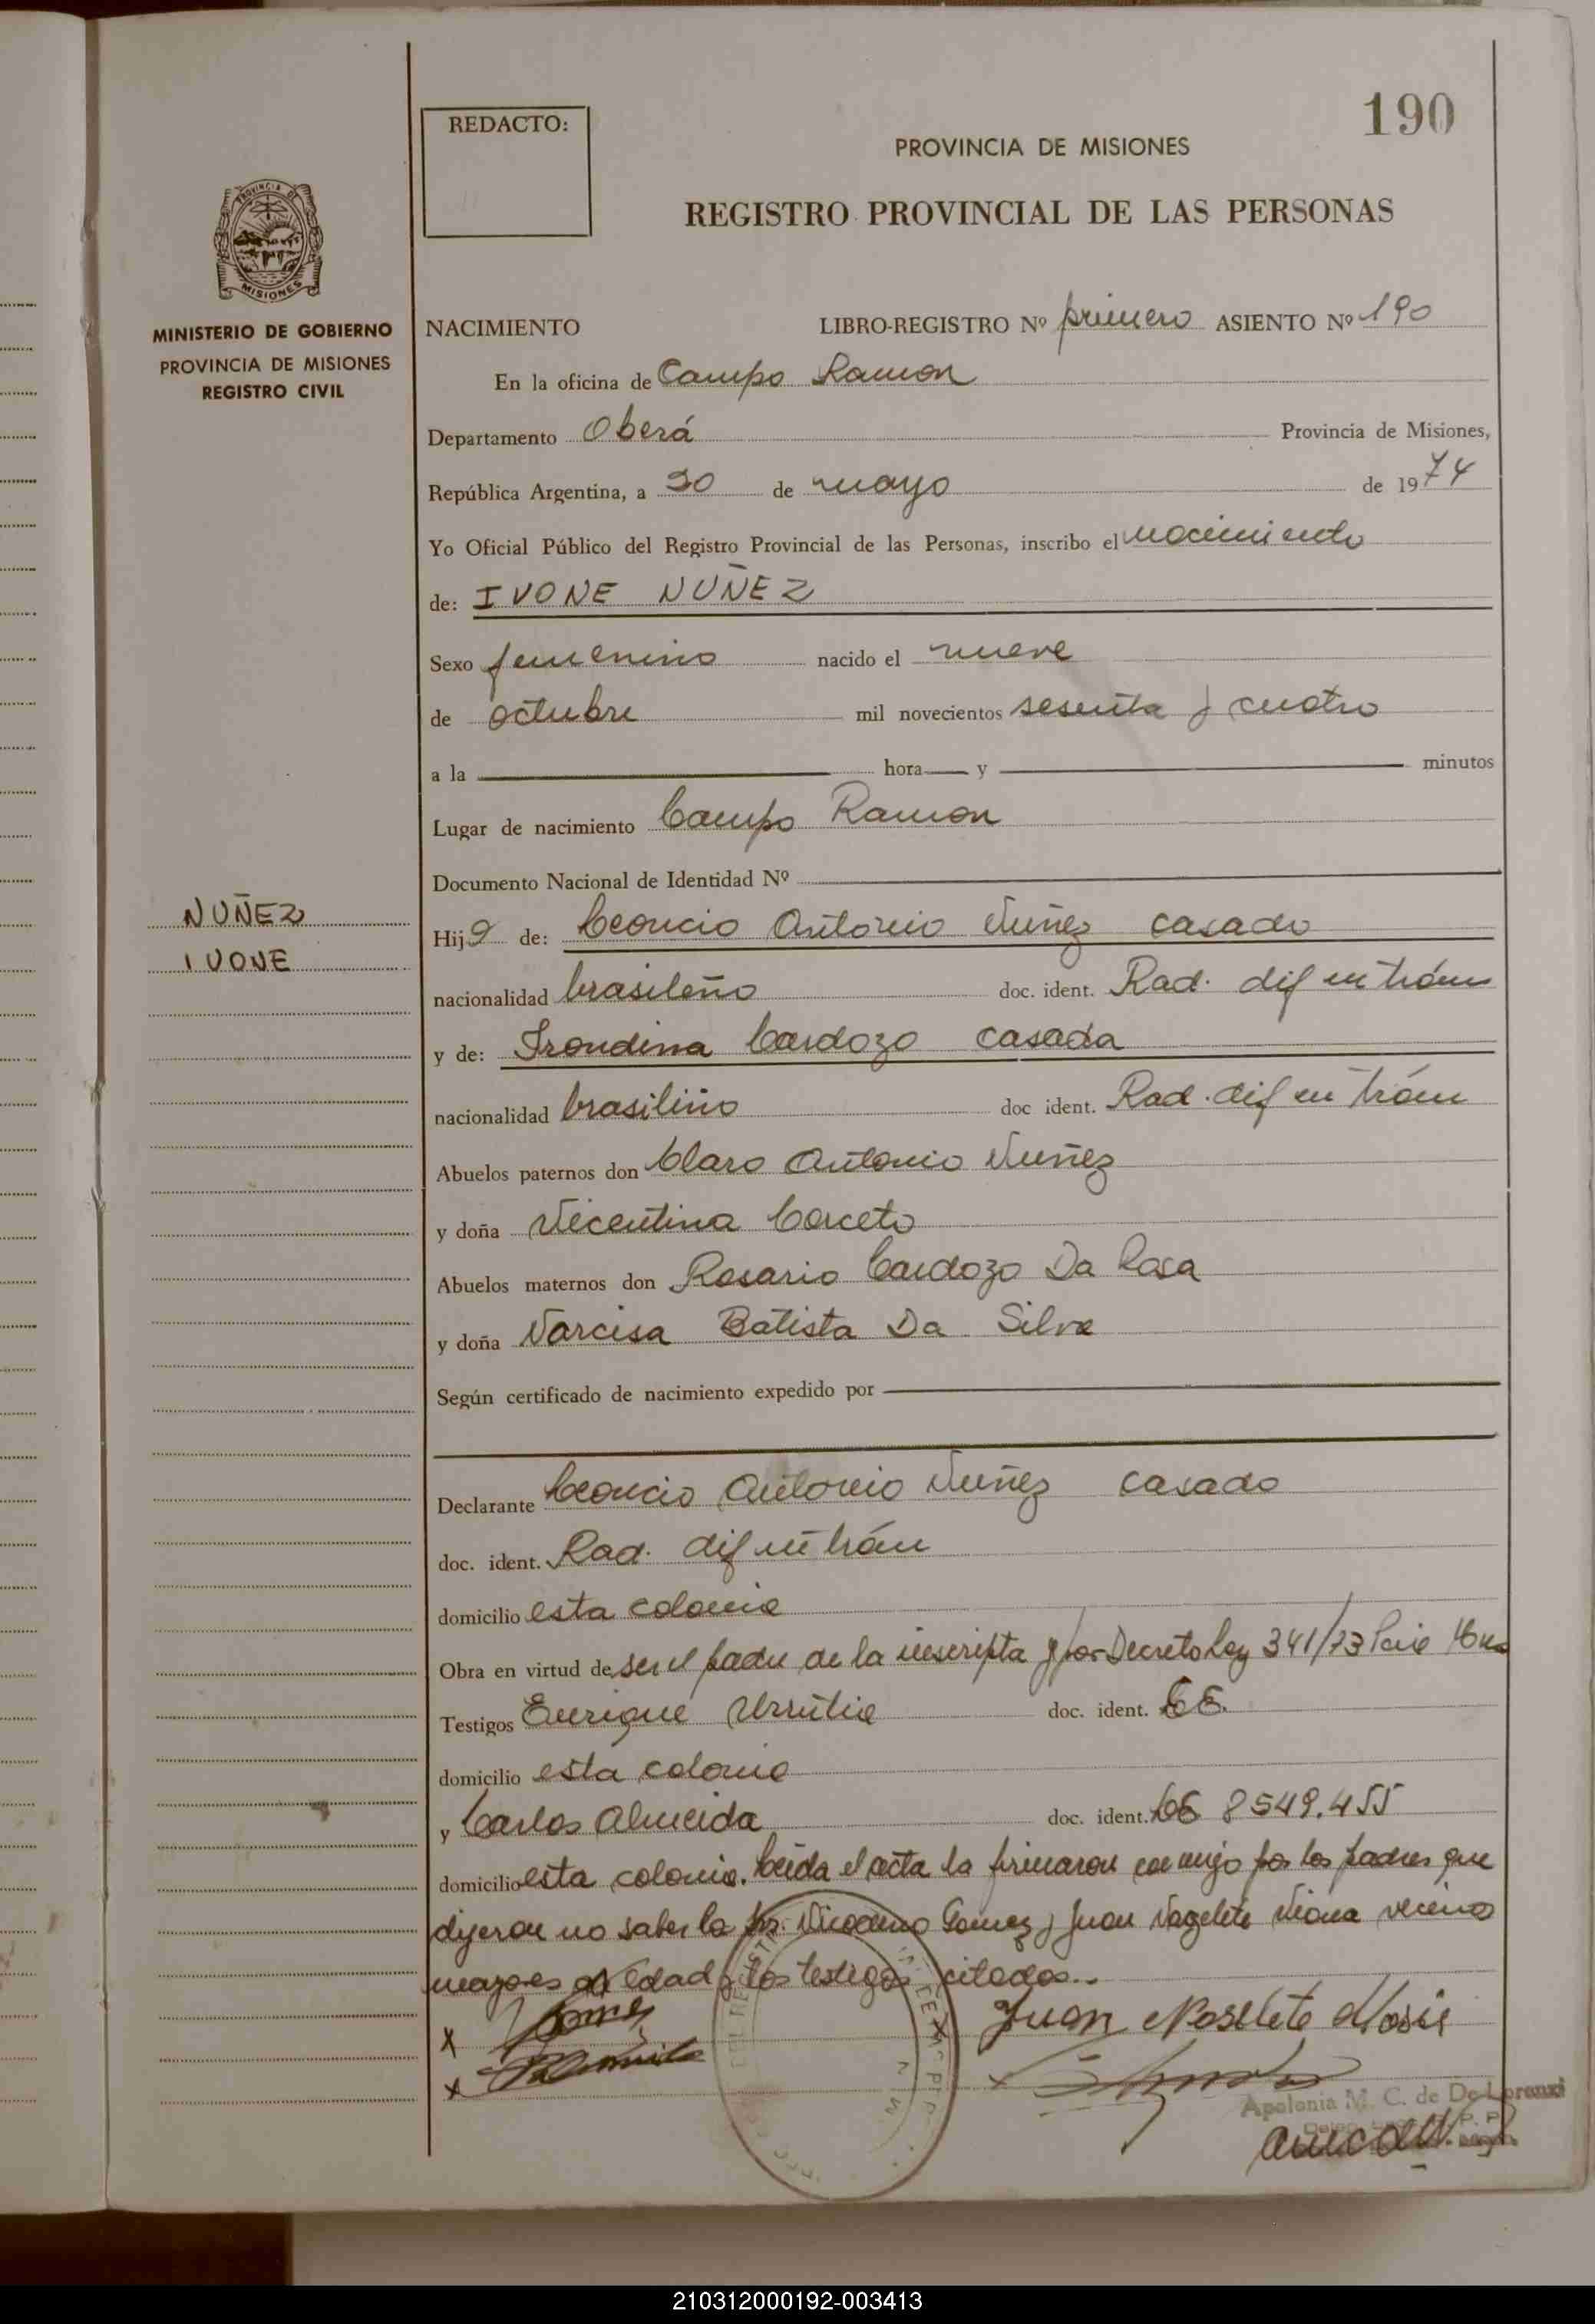 190
REDACTO:
PROVINCIA DE MISIONES
REGISTRO PROVINCIAL DE LAS PERSONAS
PROVINCIA DE
MISIONES
MINISTERIO DE GOBIERNO
PROVINCIA DE MISIONES
REGISTRO CIVIL
NACIMIENTO LIBRO-REGISTRO Nº primero ASIENTO Nº 190
En la oficina de Campo Ramon
Departamento Oberá Provincia de Misiones,
República Argentina, a 30 de mayo de 1974
Yo Oficial Público del Registro Provincial de las Personas, inscribo el nacimiento
de: IVONE NUÑEZ
Sexo femenino nacido el nueve
de octubre mil novecientos sesenta y cuatro
a la hora y minutos
Lugar de nacimiento Campo Ramon
Documento Nacional de Identidad Nº
NUÑEZ
IVONE
Hija de: Leoncio Antonio Nuñez casado
nacionalidad brasileño doc. ident. Rad. dif en trám
y de: Irondina Cardozo casada
nacionalidad brasileño doc ident. Rad. dif en trám
Abuelos paternos don Claro Antonio Nuñez
y doña Vicentina
Abuelos maternos don Rosario Cardozo Da Rosa
y doña Narcisa Batista Da Silva
Según certificado de nacimiento expedido por
Declarante Leoncio Antonio Nuñez casado
doc. ident. Rad. dif en trám
domicilio esta colonia
Obra en virtud de ser el padre de la inscripta y por Decreto Ley 341/73
Testigos Enrique Urrutia doc. ident. CE
domicilio esta colonia
y Carlos Almeida doc. ident. CE 8549.455
domicilio esta colonia. Leida el acta la firmaron conmigo por los padres que
dijeron no saber lo Sr. Nicodemo Gomez y Juan Viana vecinos
mayores de edad y los testigos citados..
x Gomez x Juan
x Almeida x
Apolonia M. C. de De Lorenzi
210312000192-003413